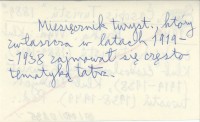 Miesięcznik turyst., który
zwłaszcza w latach 1919-
-1938 zajmował się często
tematyką tatrz.